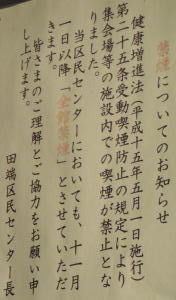 禁煙についてのお知らせ
健康増進法(平成十五年五月一日施行)
第二十五条受動喫煙防止の規定により
集会場等の施設内での喫煙が禁止とな
りました。
当区民センターにおいても、十一月
一日以降「全館禁煙」とさせていただ
きます。
皆さまのご理解とご協力をお願い申
し上げます。
田端区民センター長